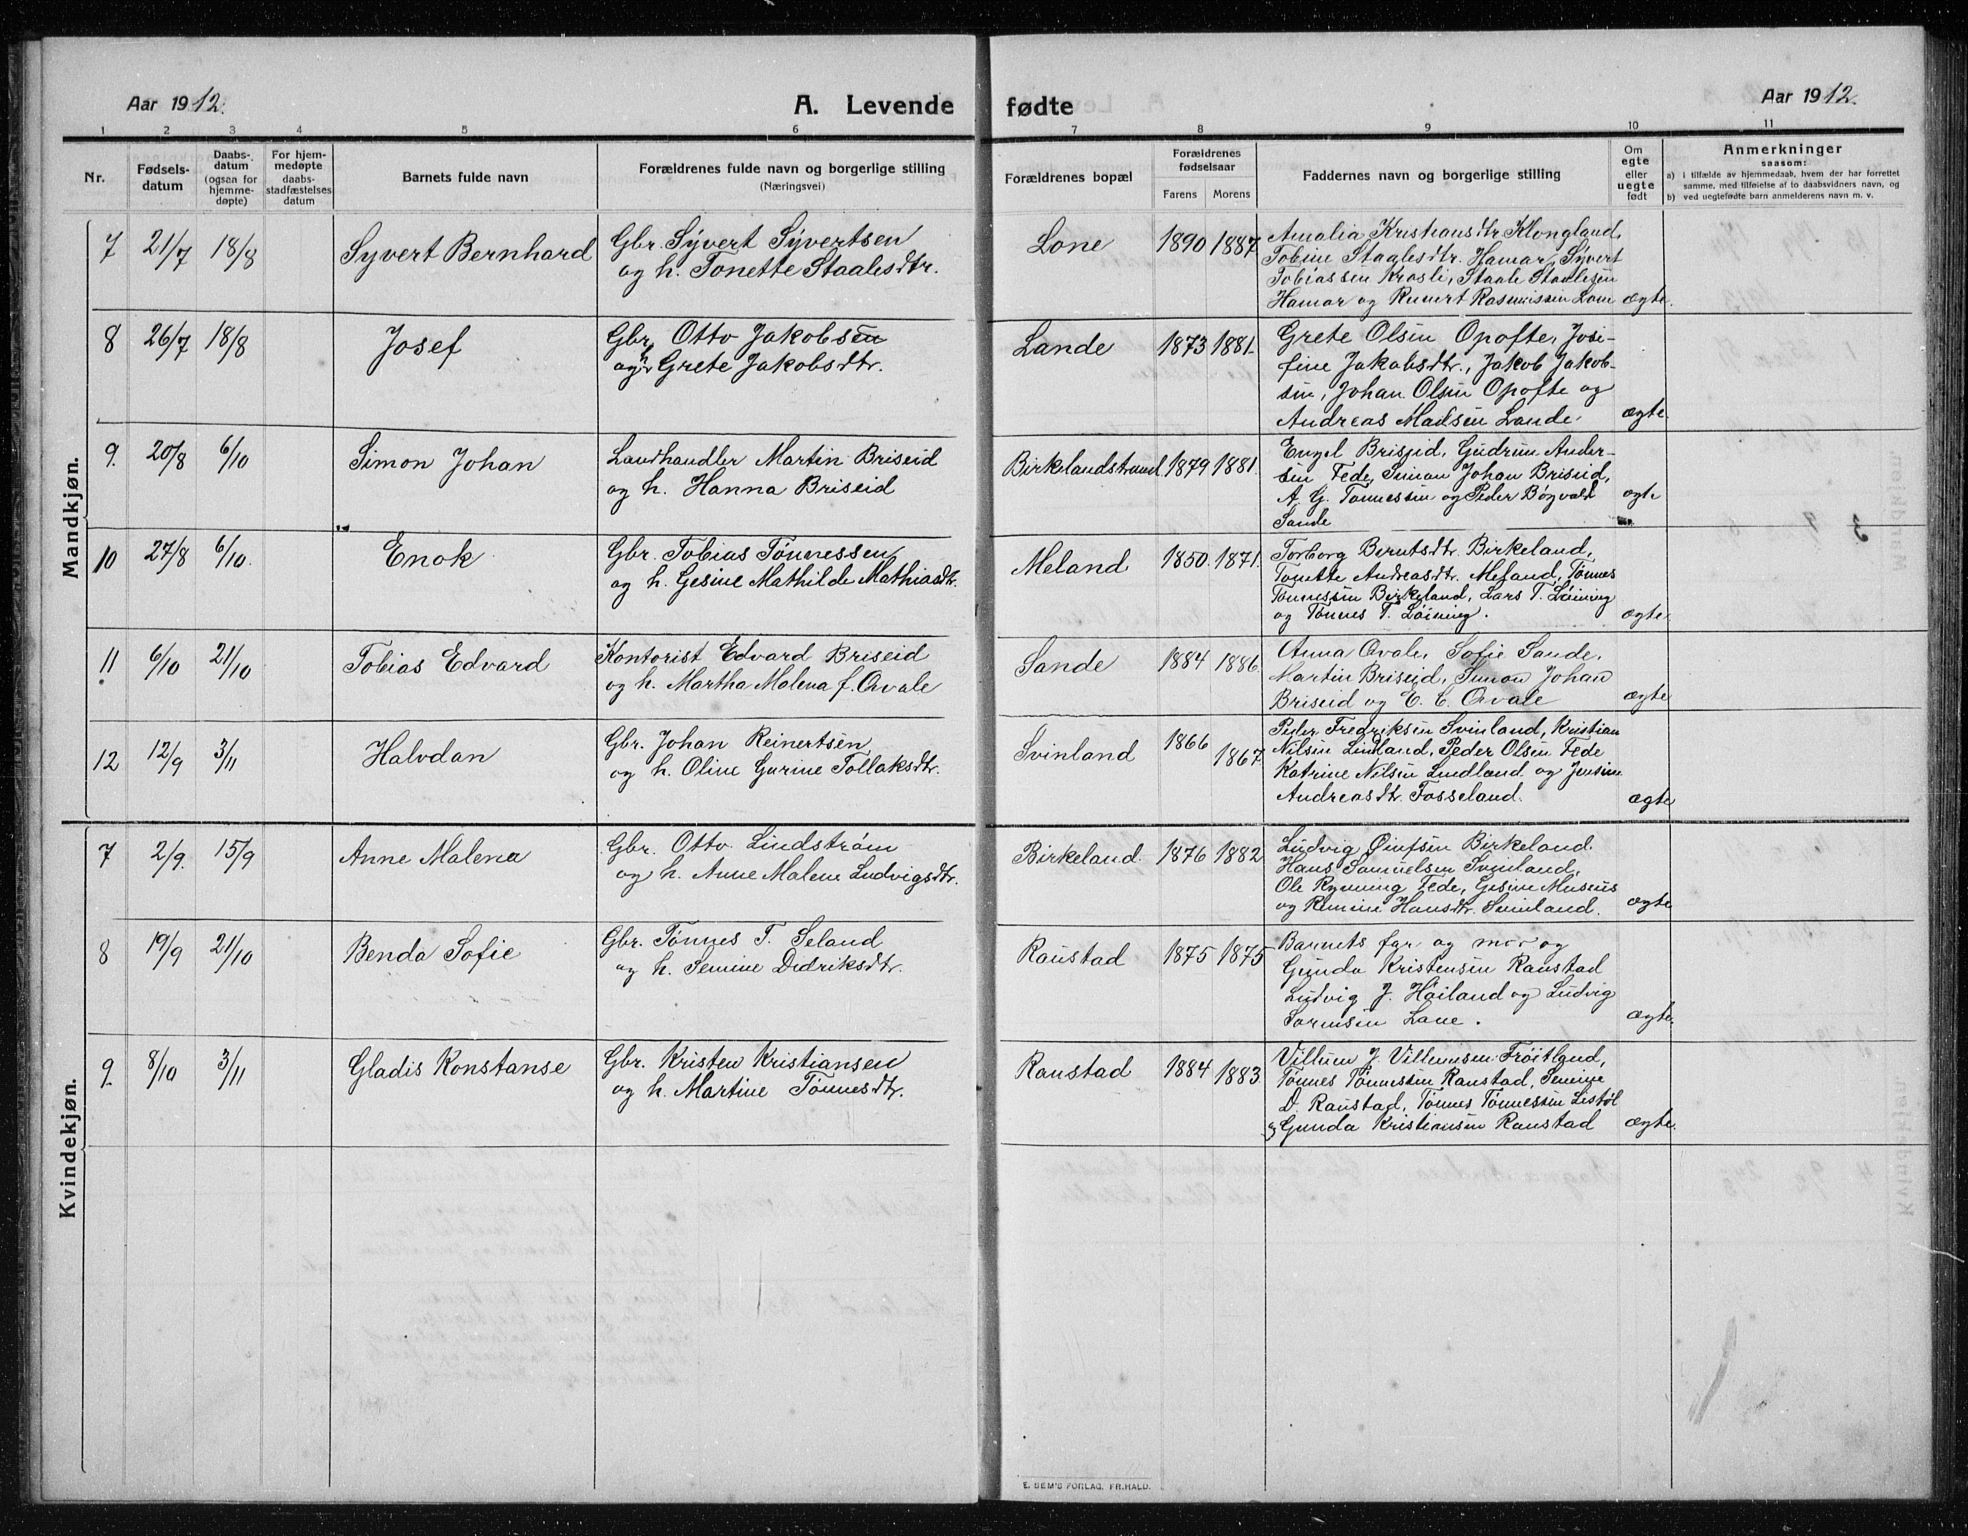 Aar 1912. A. Levende fødte Aar 1912.
1 2 3 4 5 6 7 8 9 10 11
Nr. Fødsels-datum Daabs-datum (ogsaa for hjemme-døpte) For hjem-medøpte daabs-stadfæstelses datum Barnets fulde navn Forældrenes fulde navn og borgerlige stilling (Næringsvei) Forældrenes bopæl Forældrenes fødselsaar Farens Morens Faddernes navn og borgerlige stilling Om egte eller uegte født Anmerkninger saasom:
a) i tilfælde av hjemmedaab, hvem der har forrettet samme, med tilføielse af to daabsvidners navn, og
b) ved uegtefødte barn anmelderens navn m. v.
Mandkjøn.
7 21/7 18/8 Syvert Bernhard Gbr. Syvert Syvertsen
og h. Tonette Staalesdtr.
Lone 1890 1887 Amalia Kristiansdtr Klongland
Tobine Staalesdtr. Hamar, Syvert
Tobiassen Krosli, Staale Staalesen
Hamar og Reinert Rasmussen Lone ægte.
8 26/7 18/8 Josef Gbr. Otto Jakobsen
og h. Grete Jakobsdtr.
Lande 1873 1881. Grete Olsen Opofte, Josi-
fine Jakobsdtr., Jakob Jakob-
sen, Johan Olsen Opofte og
Andreas Madsen Lande. ægte.
9. 20/8 6/10 Simon Johan Landhandler Martin Briseid
og h. Hanna Briseid
Birkelandstrand 1879 1881. Engel Briseid, Gudrun Ander-
sen Fede, Simon Johan Briseid,
A. G. Tønnessen og Peder Bøgvald
Sande ægte
10 27/8 6/10. Enok Gbr. Tobias Tønnessen
og h. Gesine Mathilde Mathiasdtr.
Meland 1850. 1871. Torborg Berntsdtr. Birkeland,
Tonette Andreasdtr. Meland, Tønnes
Tønnessen Birkeland, Lars T. Løining
og Tønnes T. Løining. ægte.
11 6/10 21/10 Tobias Edvard Kontorist Edvard Briseid
og h. Martha Malena f. Ovale
Sande 1884 1886. Anna Ovale, Sofie Sande,
Martin Briseid, Simon Johan
Briseid og E. C. Ovale ægte
12 12/9 3/11 Halvdan Gbr. Johan Reinertsen
og h. Oline Gurine Tollaksdtr.
Svinland 1866 1867. Peder Fredriksen Svinland, Kristian
Nilsen Lindland, Peder Olsen Fede
Katrine Nilsen Lindland og Jensine
Andreasdtr. Fosseland. ægte
Kvindekjøn.
7 2/9. 15/9 Anne Malena Gbr. Otto Lindstrøm
og h. Anne Malene Ludvigsdtr.
Birkeland 1876 1882 Ludvig Øinfsen Birkeland.
Hans Samuelsen Svinland,
Ole Rynning Fede, Gesine Museus
og Remine Hansdtr. Svinland. ægte
8 19/9 21/10 Benda Sofie Gbr. Tønnes T. Seland
og h. Semine Didriksdtr.
Raustad 1875 1875 Barnets far og mor og
Gunda Kristensen Raustad
Ludvig J. Høiland og Ludvig
Sørensen Lone. ægte.
9. 8/10 3/11 Gladis Konstanse Gbr. Kristen Kristiansen
og h. Martine Tønnesdtr.
Raustad 1884 1883. Villum J. Villumsen Frøitland,
Tønnes Tønnessen Raustad, Semine
D. Raustad, Tønnes Tønnessen Listøl
og Gunda Kristiansen Raustad ægte.
E. SEM'S FORLAG, FR.HALD.